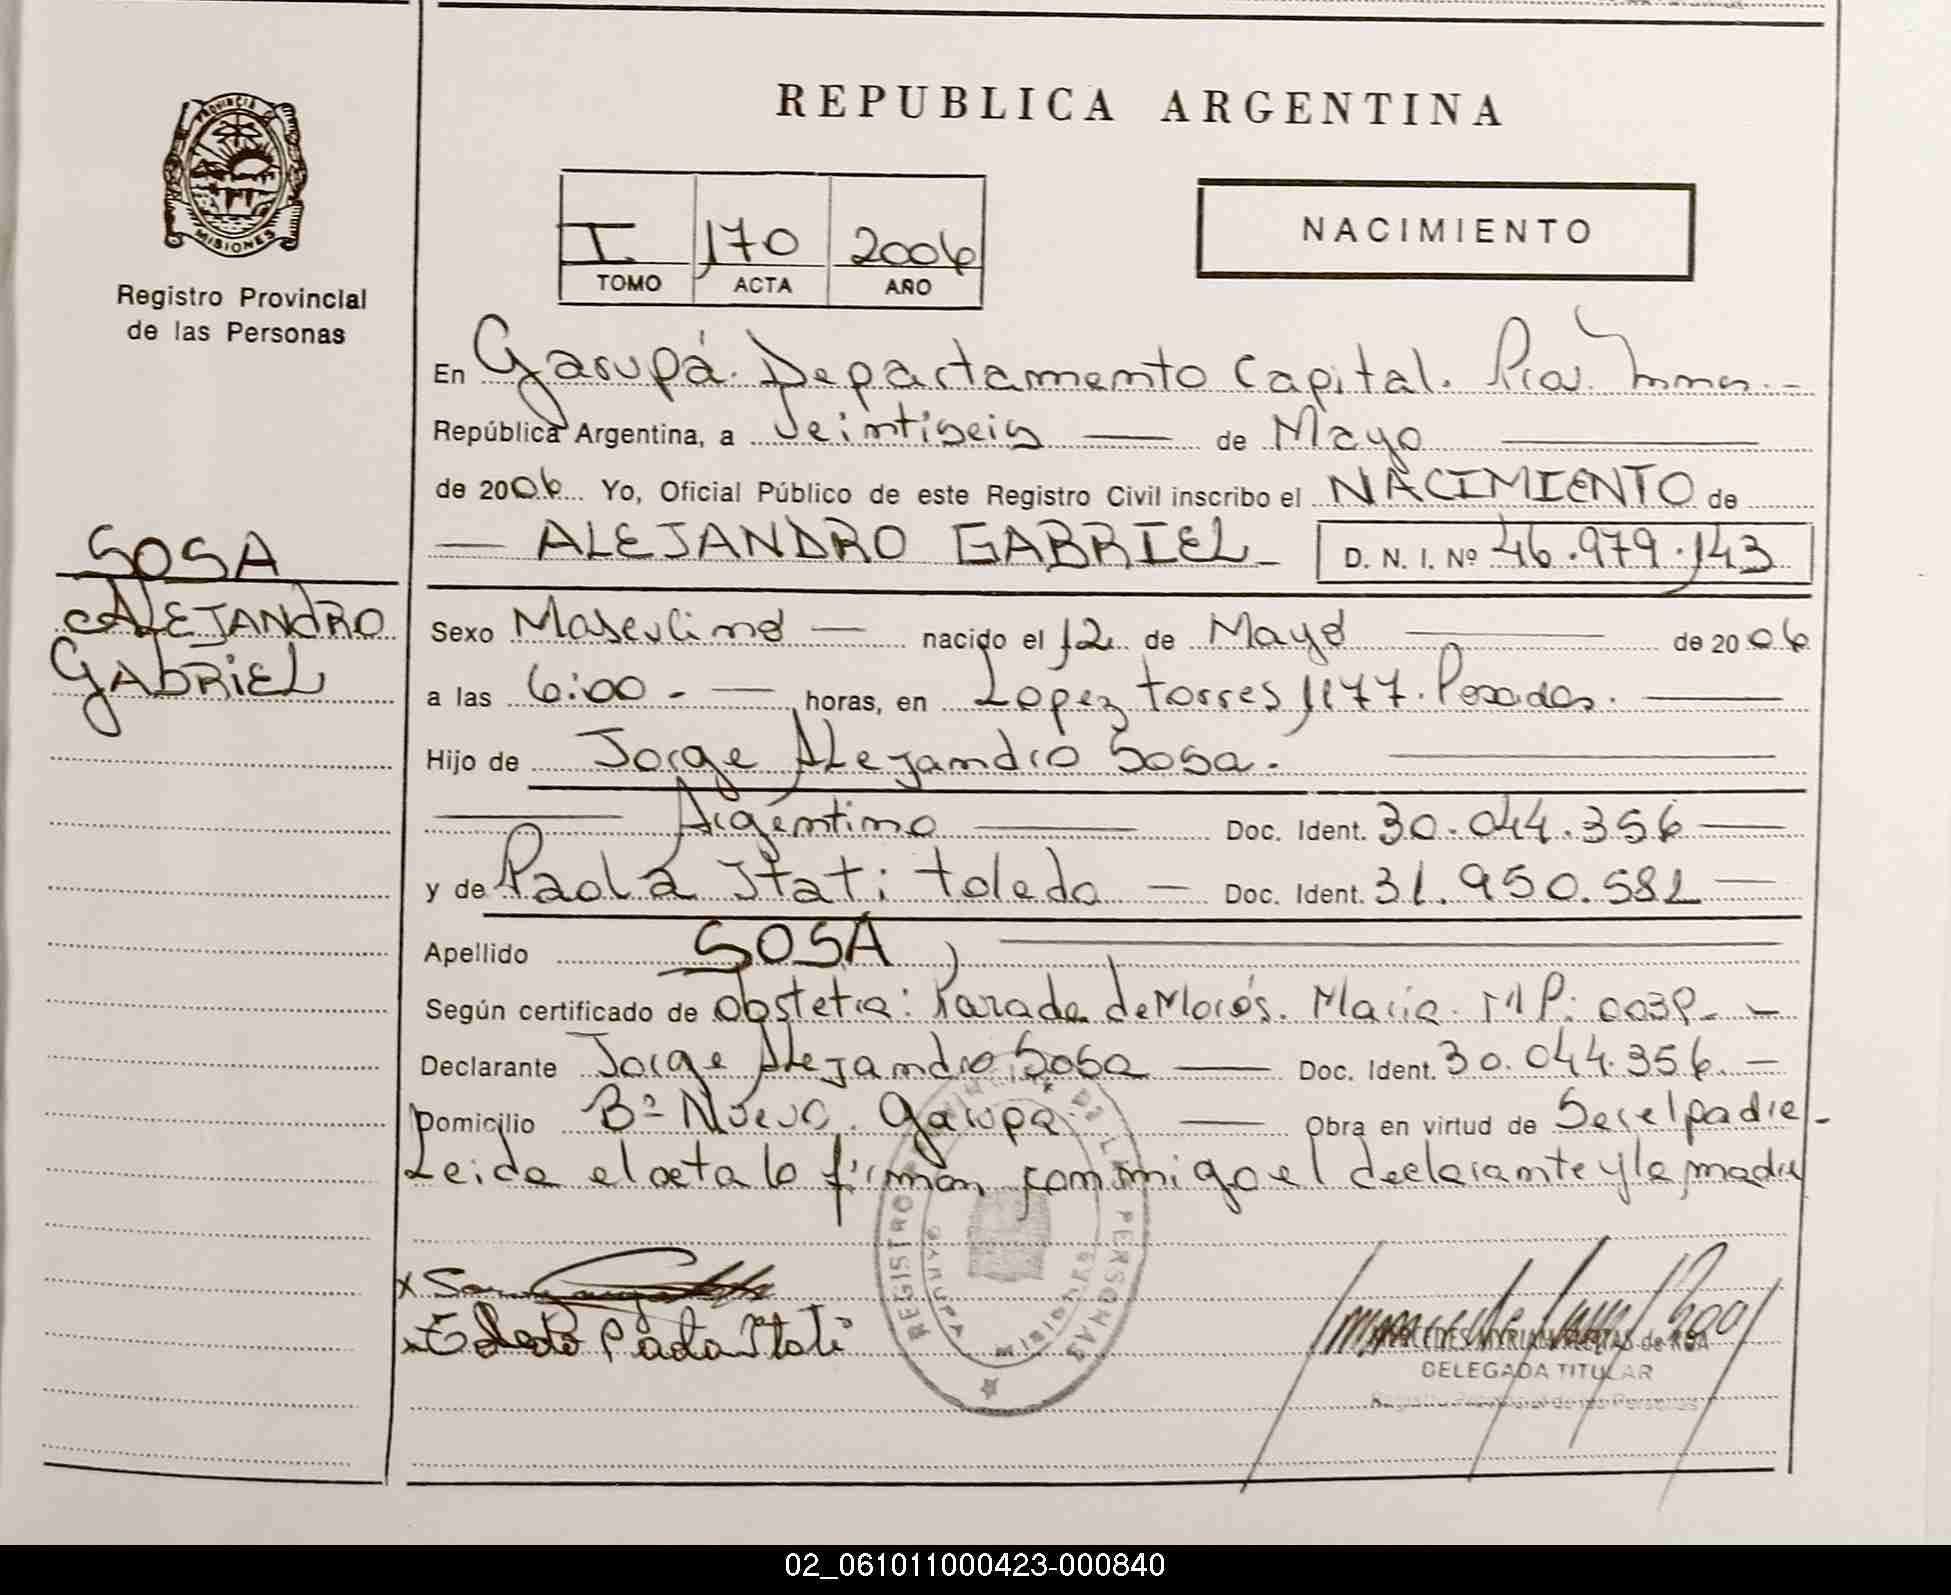 REPUBLICA ARGENTINA
PROVINCIA
MISIONES
Registro Provincial
de las Personas
I 170 2006
TOMO ACTA AÑO
NACIMIENTO
En Garupá. Departamento Capital.
República Argentina, a Veintiseis de Mayo
de 2006 Yo, Oficial Público de este Registro Civil inscribo el NACIMIENTO de
ALEJANDRO GABRIEL D. N. I. Nº 46.979.143
SOSA
ALEJANDRO
GABRIEL
Sexo Masculino nacido el 12 de Mayo de 2006
a las 6:00 - horas, en Lopez torres 1177. Posadas.
Hijo de Jorge Alejandro Sosa.
Argentino Doc. Ident. 30.044.356
y de Paola Itati toledo Doc. Ident. 31.950.582
Apellido SOSA
Según certificado de obstetra: Parada de Morós. Maria. MP:
Declarante Jorge Alejandro Sosa Doc. Ident. 30.044.356.
Domicilio Bº Nuevo. Garupa. Obra en virtud de Ser el padre
Leida el acta la firman conmigo el declarante y la madre
x
x Toledo Paola Itati
REGISTRO PERSONAS
MISIONES
de ROA
DELEGADA TITULAR
Registro Provincial de las Personas
02_061011000423-000840